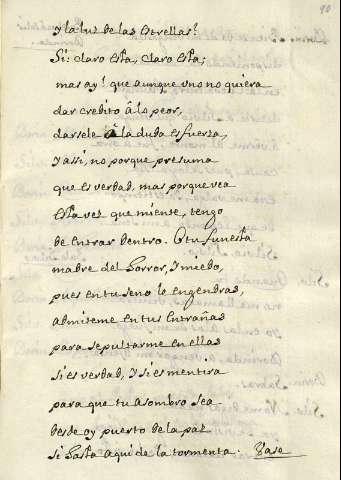 90
y la luz de las estrellas?
Si: claro està, claro està;
mas ay! que aunque uno no quiera
dar credito â lo peor,
darsele â la duda es fuerza,
y assi, no porque presuma
que es verdad, mas porque vea
esta vez que miente, tengo
de entrar dentro. O tu funesta
madre del horror, y miedo,
pues en tu seno lo engendras,
admiteme en tus entrañas
para sepultarme en ellas
si es verdad, y si es mentira
para que tu asombro sea
desde oy puerto de la paz
si hasta aqui de la tormenta. Vase